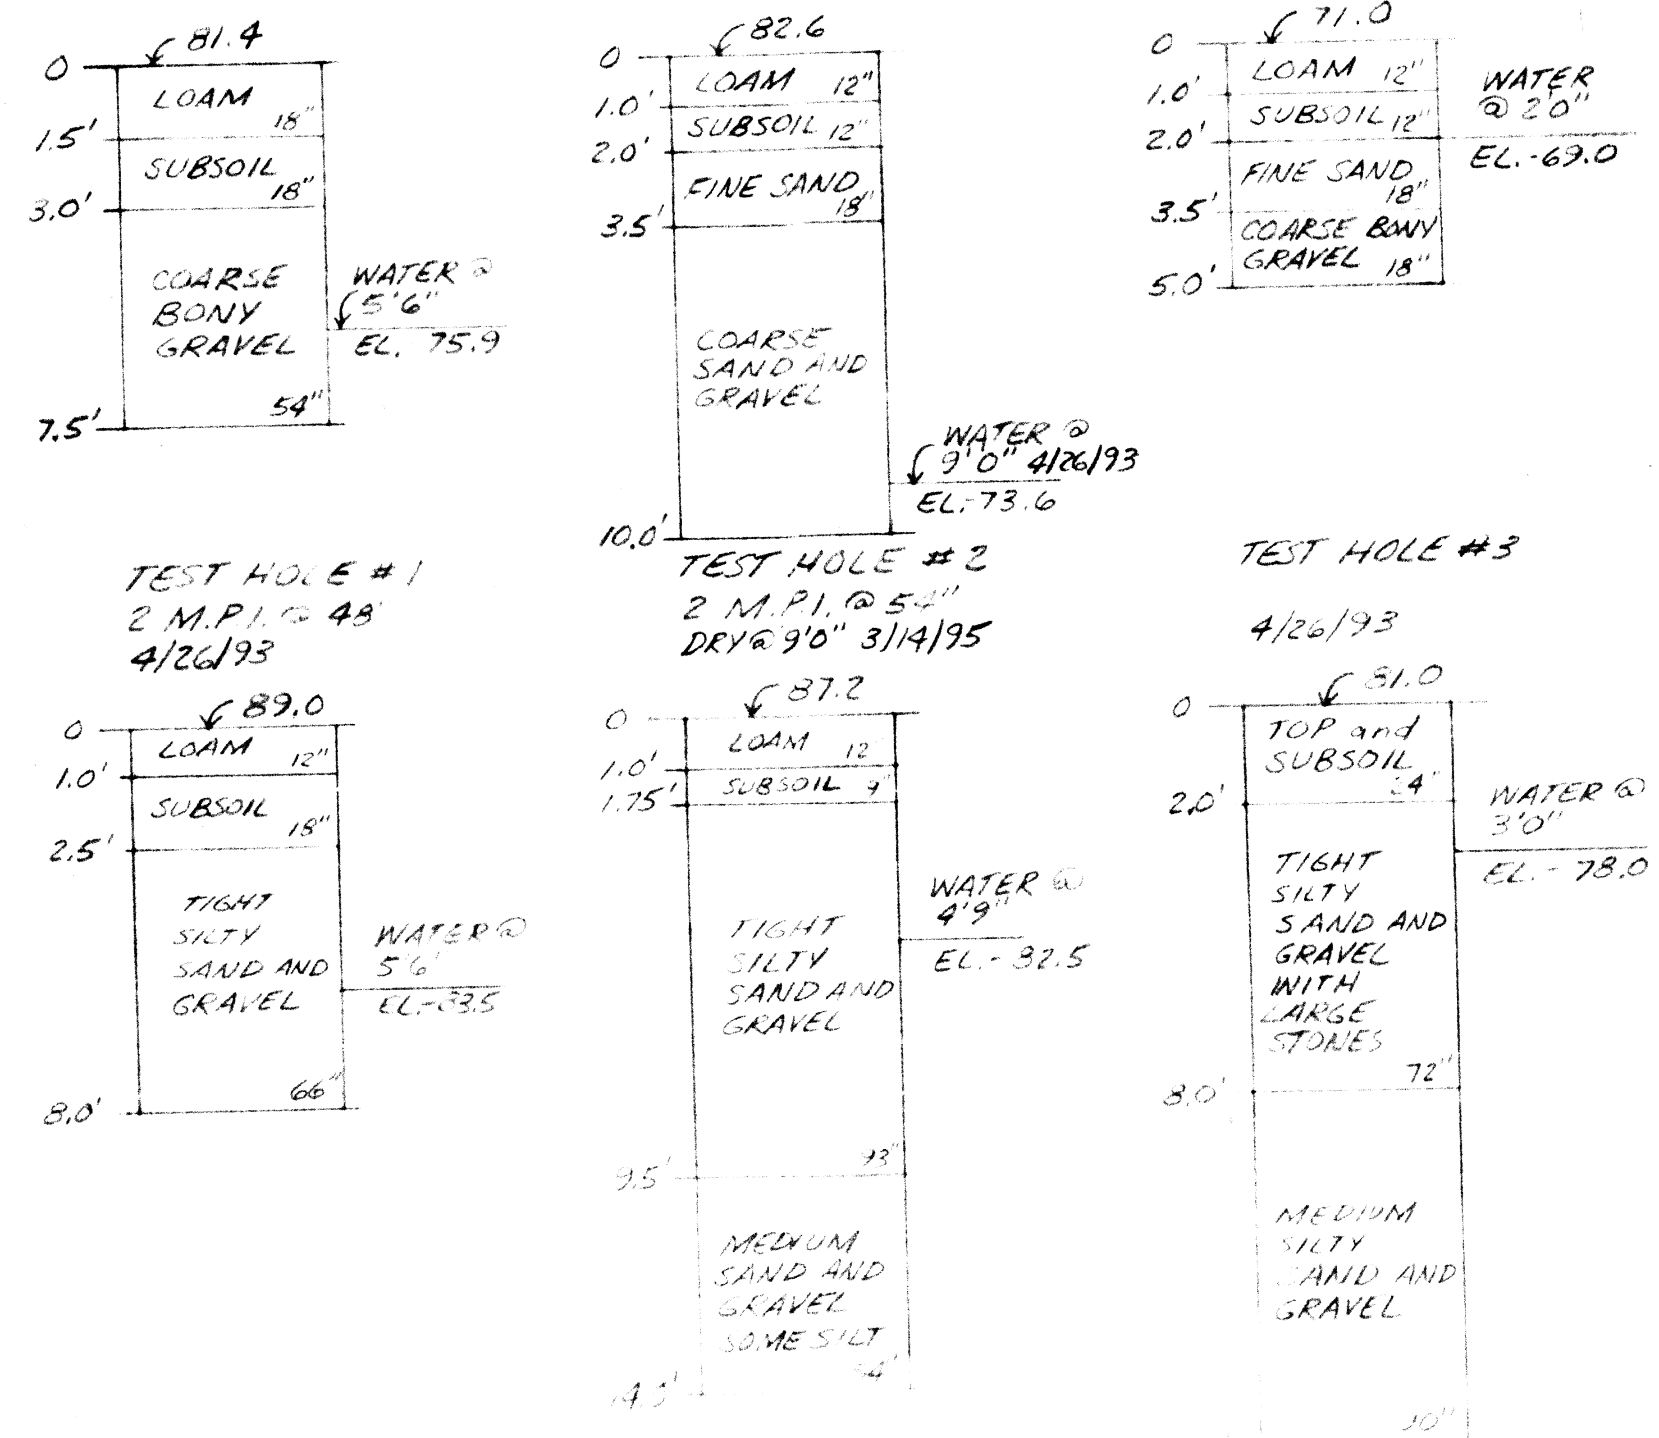 81.4
0
LOAM
18"
1.5'
SUBSOIL
18"
3.0'
COARSE
BONY
GRAVEL
54"
7.5'
WATER @
5'6"
EL. 75.9
TEST HOLE #1
2 M.P.I. @ 48
4/26/93
82.6
0
LOAM 12"
1.0'
SUBSOIL 12"
2.0'
FINE SAND
18"
3.5'
COARSE
SAND AND
GRAVEL
10.0'
WATER @
9'0" 4/26/93
EL.-73.6
TEST HOLE #2
2 M.P.I. @ 54"
DRY @ 9'0" 3/14/95
71.0
0
LOAM 12"
1.0'
SUBSOIL 12"
2.0'
FINE SAND
18"
3.5'
COARSE BONY
GRAVEL 18"
5.0'
WATER
@ 2'0"
EL.-69.0
TEST HOLE #3
4/26/93
89.0
0
LOAM 12"
1.0'
SUBSOIL
18"
2.5'
TIGHT
SILTY
SAND AND
GRAVEL
66"
8.0'
WATER @
5'6"
EL.-83.5
87.2
0
LOAM 12
1.0'
SUBSOIL 9"
1.75'
TIGHT
SILTY
SAND AND
GRAVEL
93"
9.5'
MEDIUM
SAND AND
GRAVEL
SOME SILT
WATER @
4'9"
EL.-82.5
81.0
0
TOP and
SUBSOIL
24"
2.0'
TIGHT
SILTY
SAND AND
GRAVEL
WITH
LARGE
STONES
72"
8.0'
MEDIUM
SILTY
SAND AND
GRAVEL
WATER @
3'0"
EL.-78.0